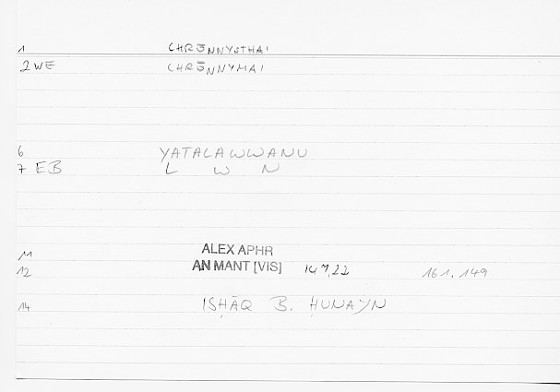 1 CHRŌNNYSTHAI
2 WE CHRŌNNYMAI
6 YATALAWWANU
7 EB L W N
11 ALEX APHR
12 AN MANT [VIS] 147,22 161.149
14 ISḤĀQ B. ḤUNAYN